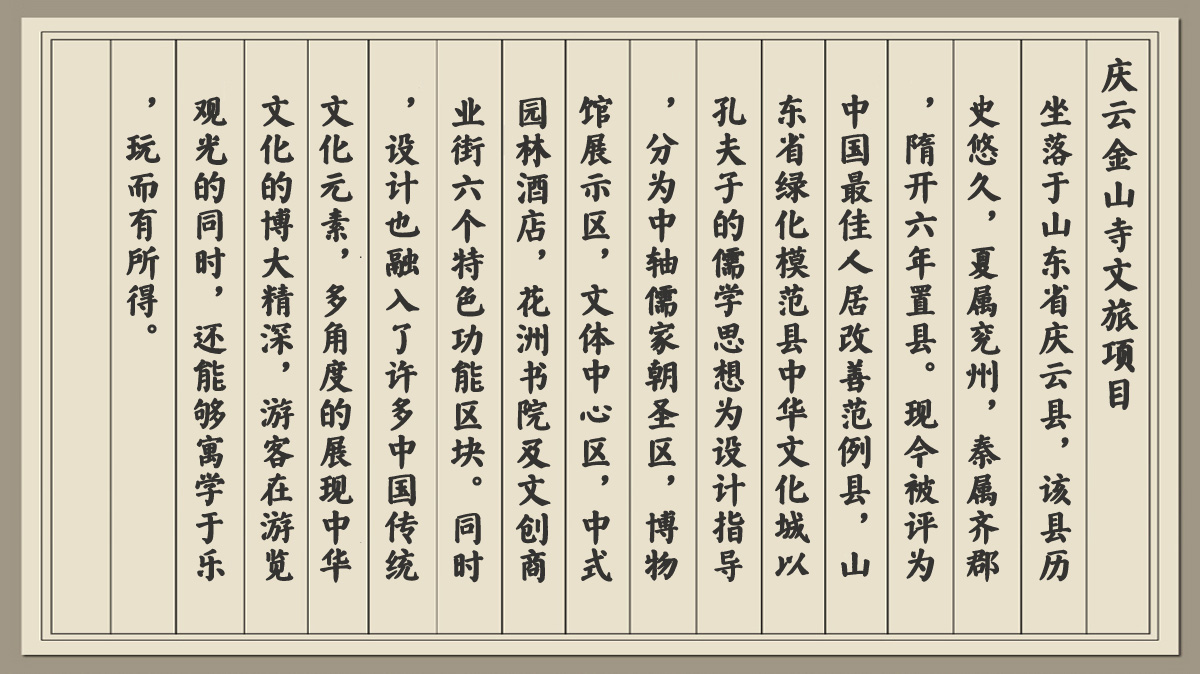 庆云金山寺文旅项目
坐落于山东省庆云县，该县历
史悠久，夏属兖州，秦属齐郡
，隋开六年置县。现今被评为
中国最佳人居改善范例县，山
东省绿化模范县中华文化城以
孔夫子的儒学思想为设计指导
，分为中轴儒家朝圣区，博物
馆展示区，文体中心区，中式
园林酒店，花洲书院及文创商
业街六个特色功能区块。同时
，设计也融入了许多中国传统
文化元素，多角度的展现中华
文化的博大精深，游客在游览
观光的同时，还能够寓学于乐
，玩而有所得。